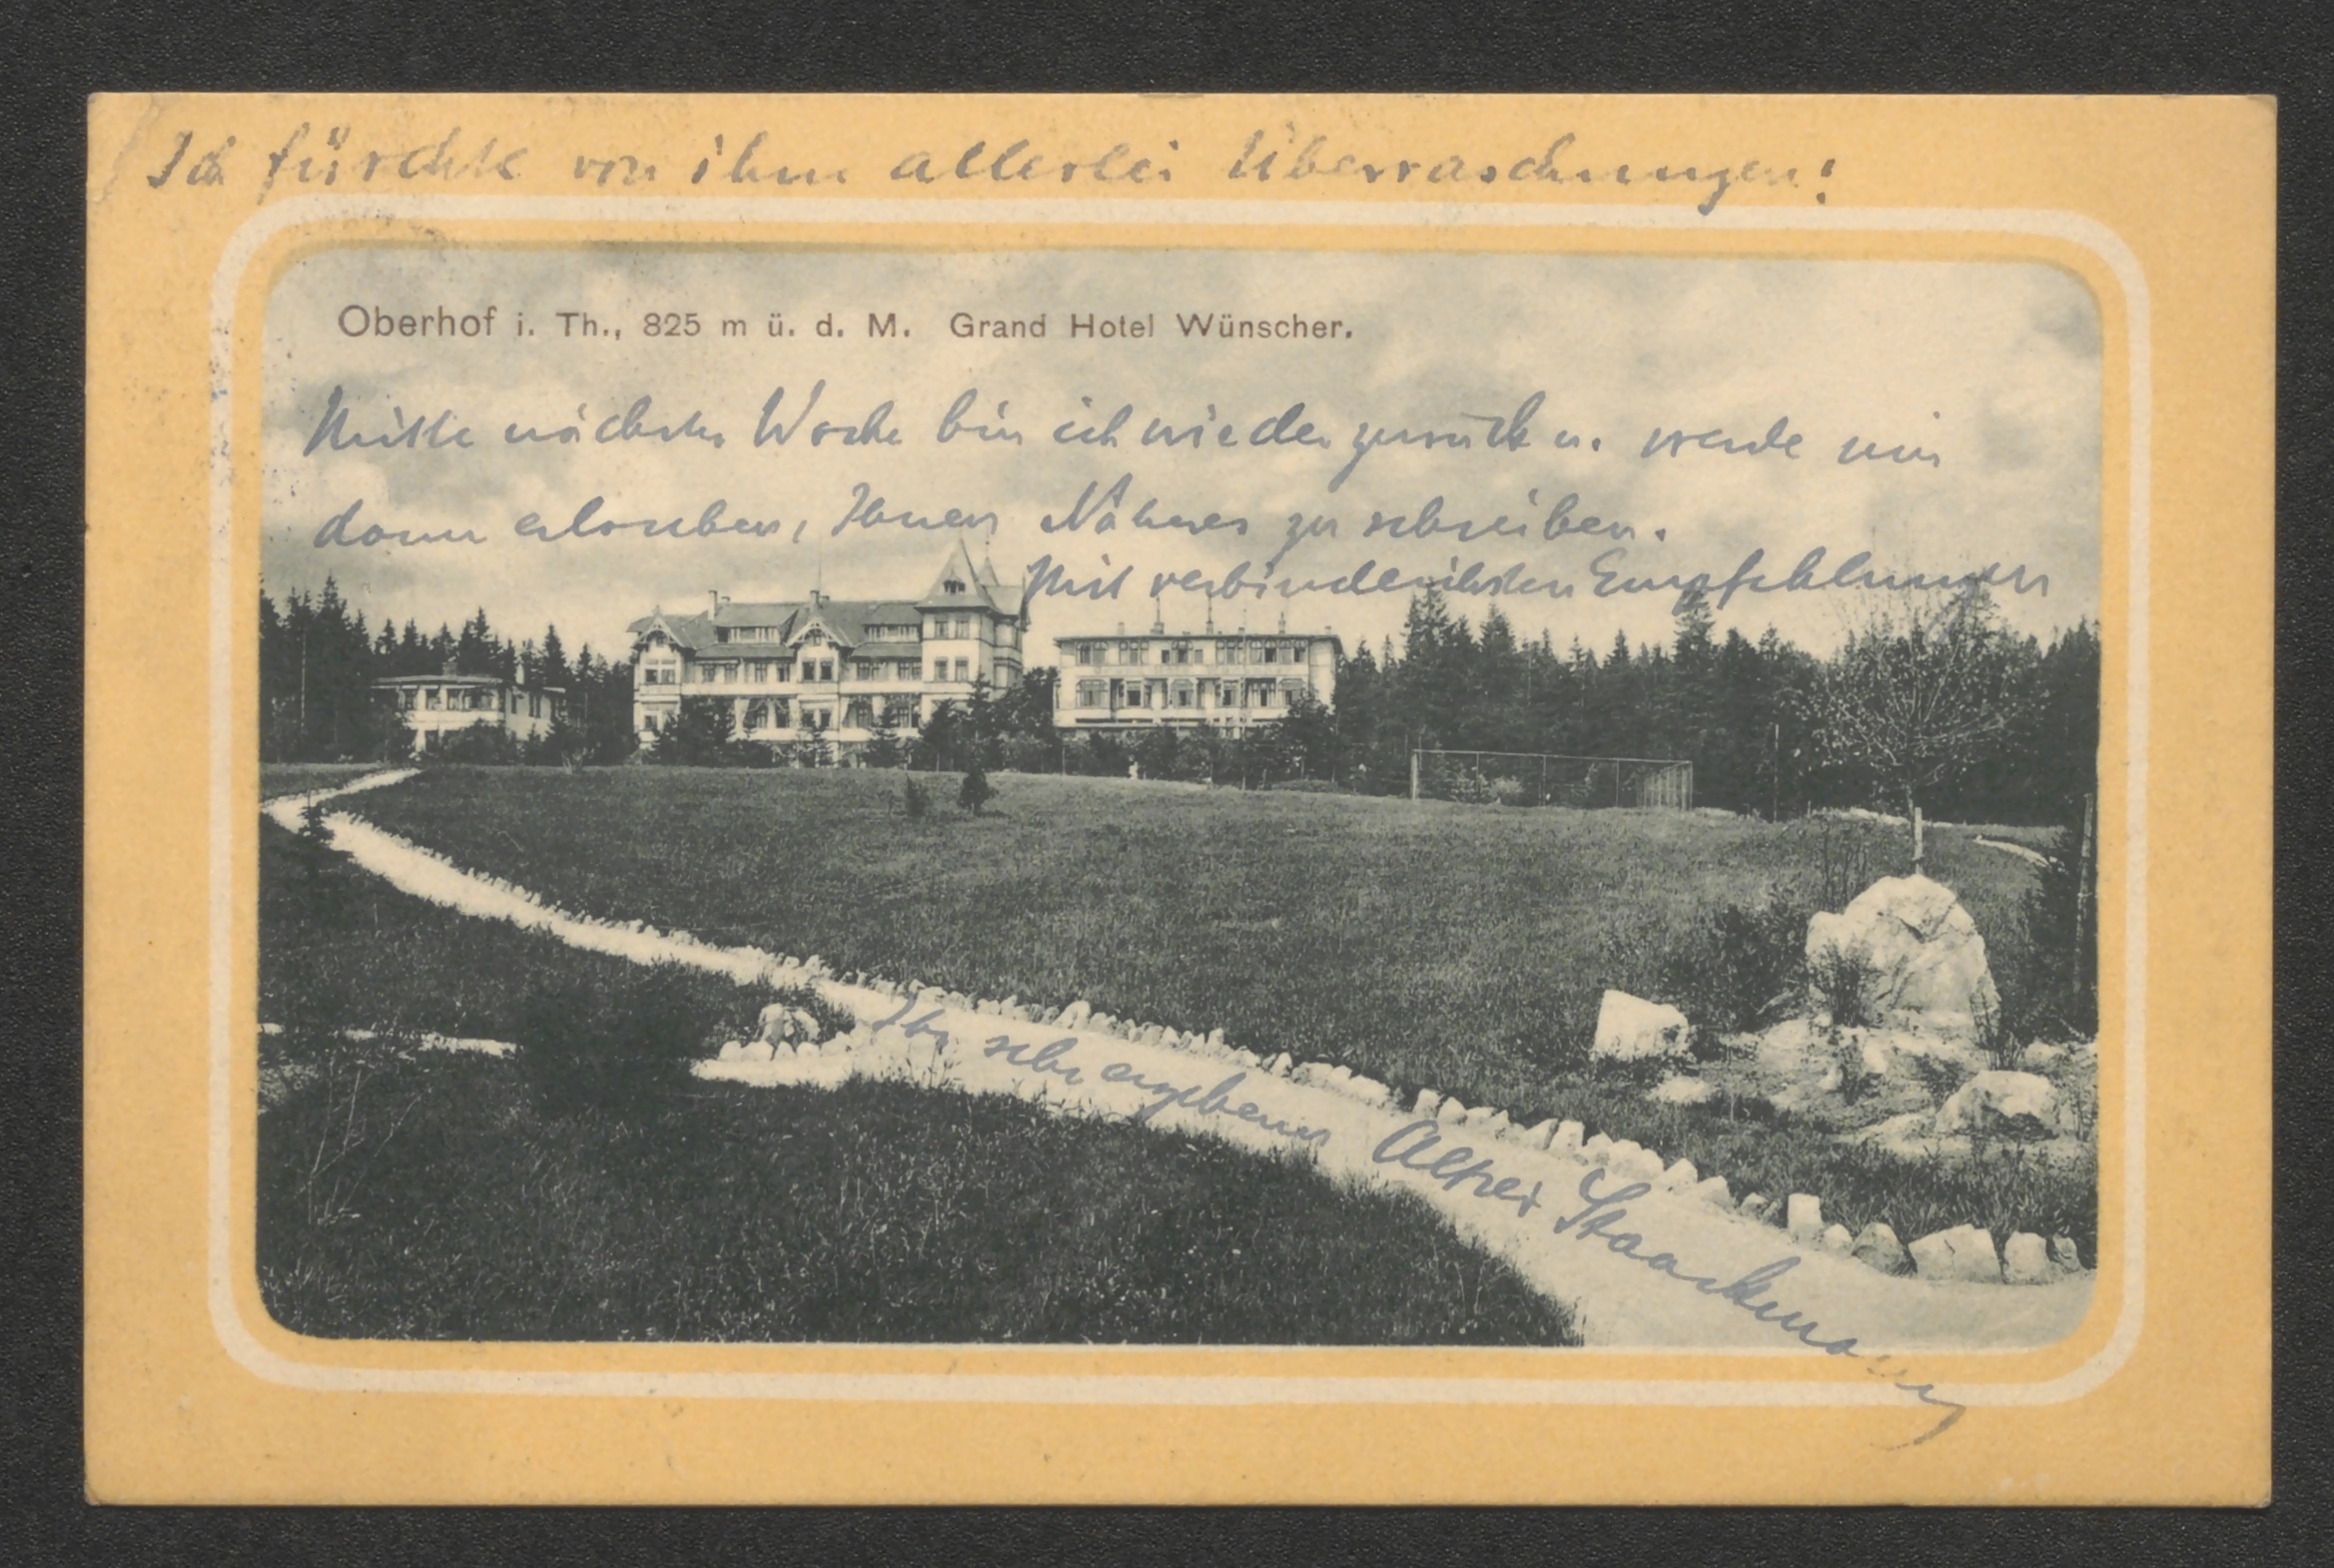 Ich fürchte von ihm allerlei Überraschungen!
Oberhof i. Th., 825 m ü. d. M. Grand Hotel Wünscher.
Mitte nächster Woche bin ich wieder zurück u. werde mir
dann erlauben, Ihnen Näheres zu schreiben.
Mit verbindlichsten Empfehlungen
Ihr sehr ergebener Alfred Staackmann